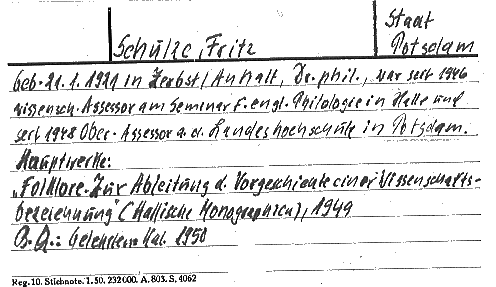 Staat
Schulze, Fritz Potsdam
geb. 21.1.1921 in Zerbst/Anhalt, Dr. phil., war seit 1946
wissensch. Assessor am Seminar f. engl. Philologie in Halle und
seit 1948 Ober-Assessor a. d. Landeshochschule in Potsdam.
Hauptwerke:
„Folklore. Zur Ableitung d. Vorgeschichte einer Wissenschafts-
bezeichnung" (Hallische Monographien), 1949
B.Q.: Gelehrten Kal. 1950
Reg. 10. Stichnote. 1. 50. 232000. A. 803. S. 4062